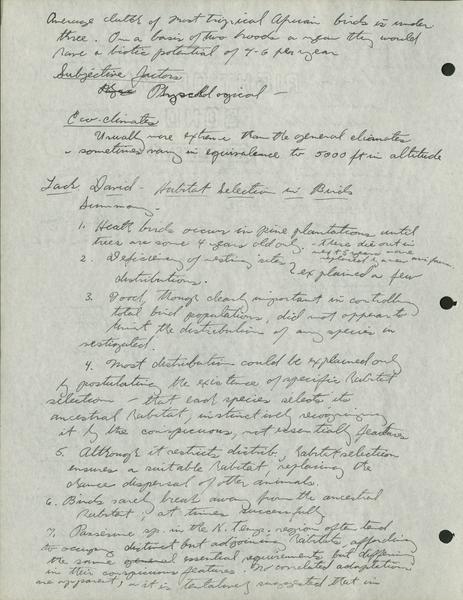 Average clutch of most tropical African birds is under
three. On a basis of two broods a year they would
have a biotic potential of 4-6 per year
Subjective factors
Psychological —
Eco-climates
Usually more extreme than the general climates
sometimes vary in equivalence to 5000 ft in altitude
Lack, David - Habitat Selection in Birds
Summary -
1. Heath birds occur in pine plantations until
trees are some 4 years old only. - these die out in
2. Deficiency of nesting sites explained a few
distributions.
3. Food, though clearly important in controlling
total bird populations, did not appear to
limit the distribution of any species in
vestigated.
4. Most distribution could be explained only
by postulating the existence of specific habitat
selection - that each species selects its
ancestral habitat, instinctively recognizing
it by the conspicuous, not essentially features
5. Although it restricts distrib., habitat selection
ensures a suitable habitat, replacing the
chance dispersal of other animals.
6. Birds rarely break away from the ancestral
habitat, at times successfully
7. Passerine sp. in the N. temp. region often tend
to occupy distinct but adjoining habitats, affording
the same general essential requirements but differing
in their conspicuous features. No correlated adaptation
are apparent, it is tentatively suggested that in